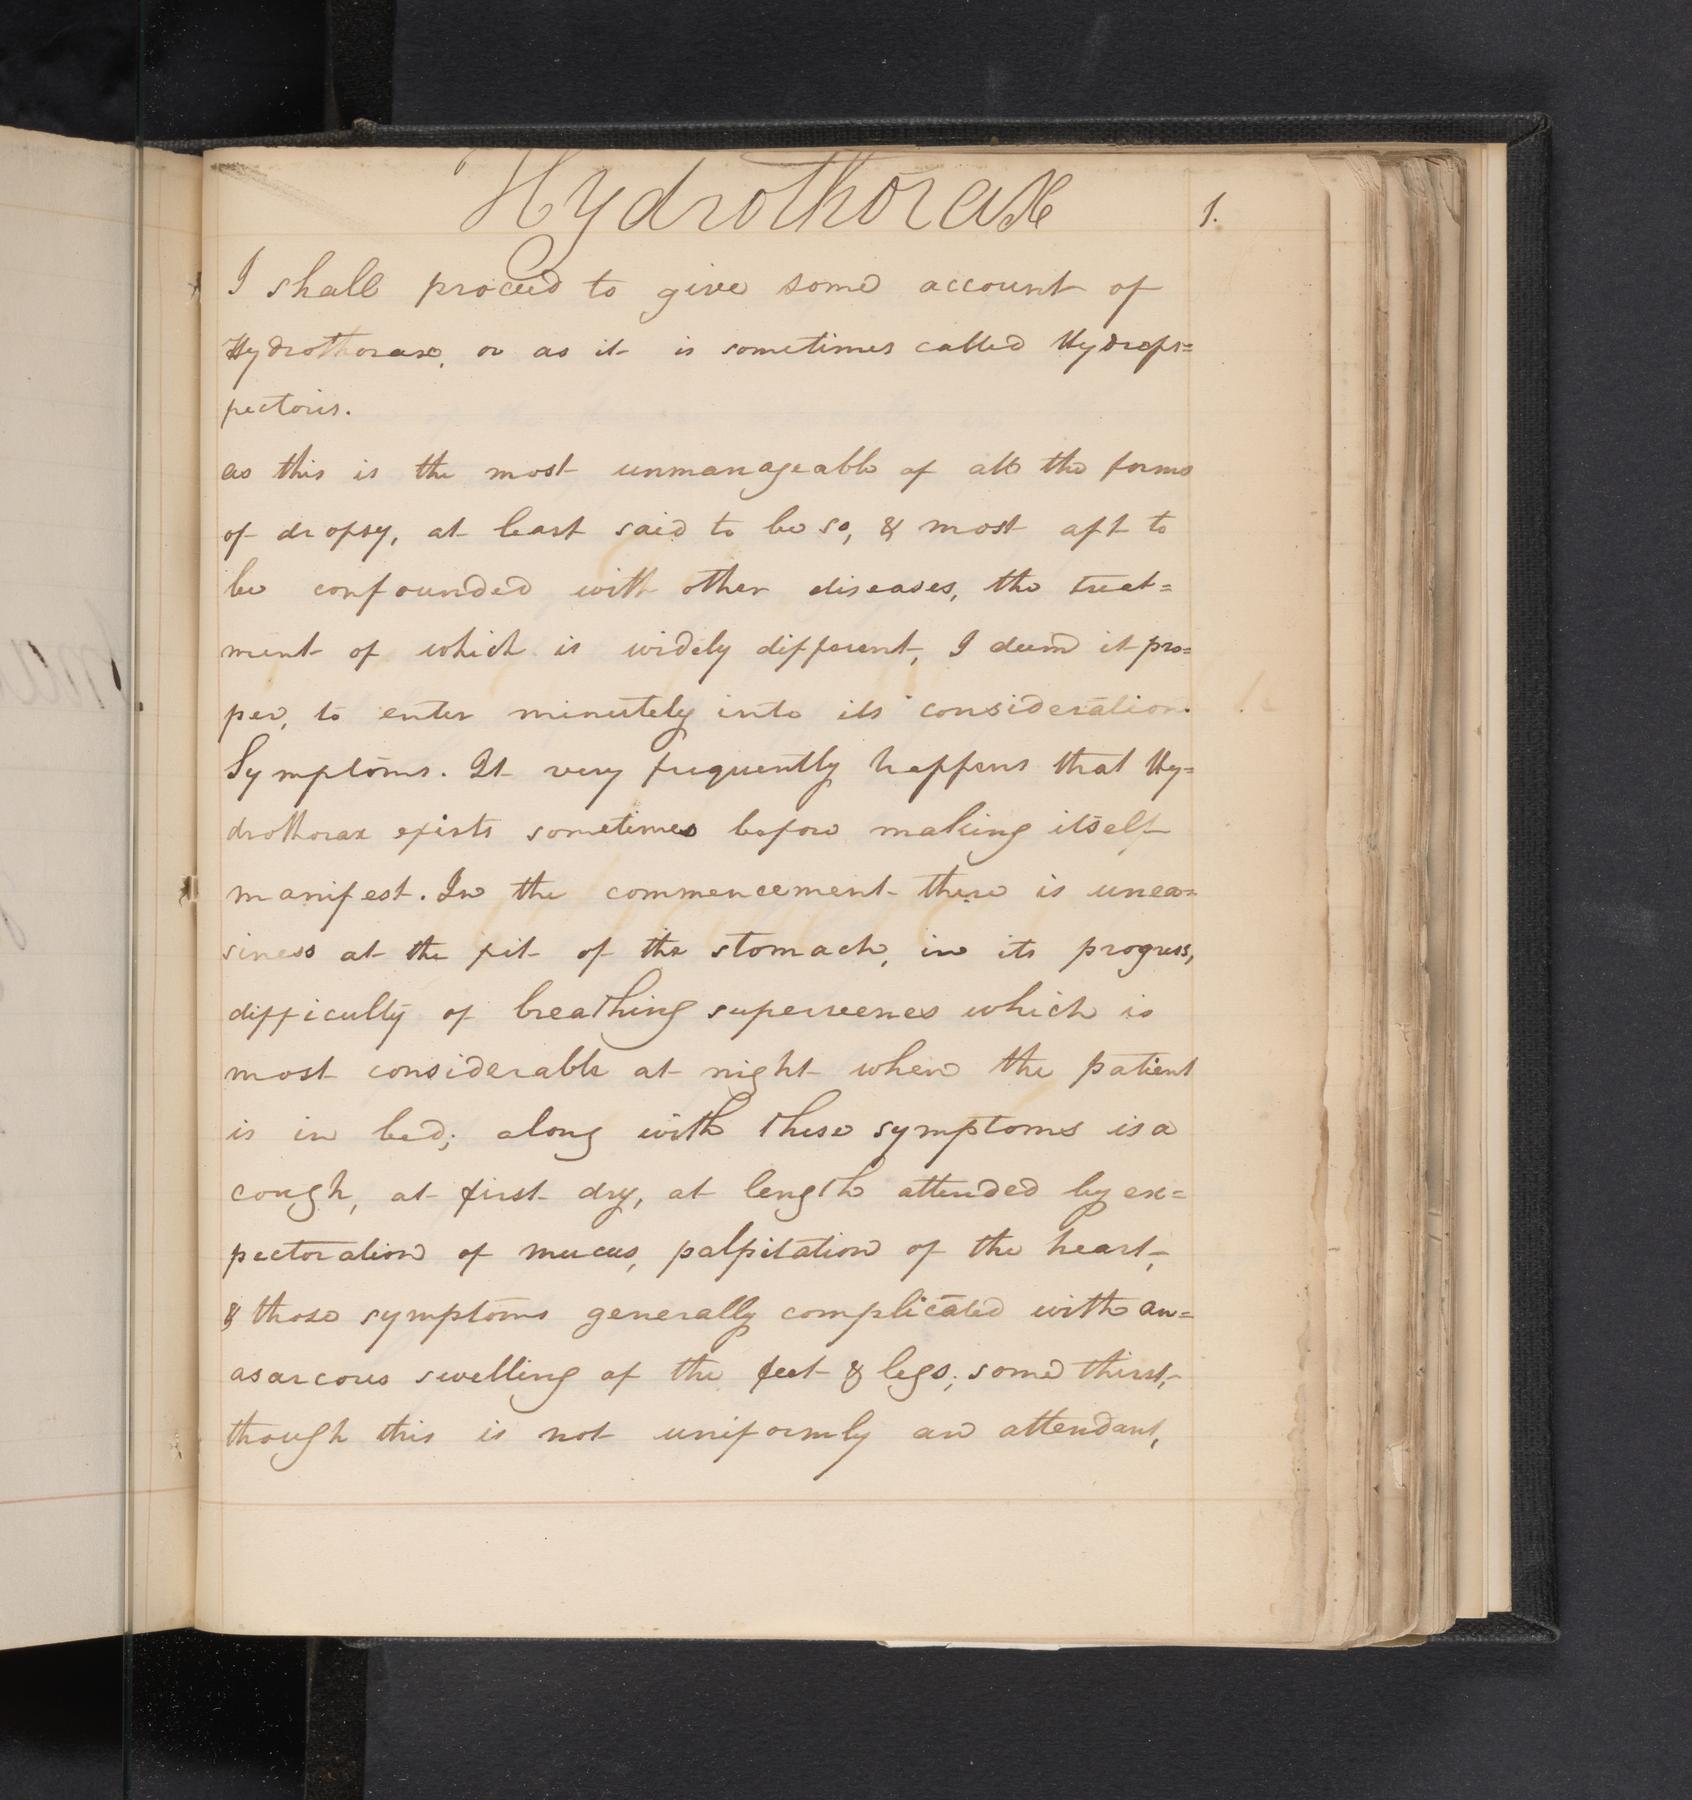 Hydrothorax
1.
I shall proceed to give some account of
Hydrothorax, or as it is sometimes called Hydrops=
pectoris.
as this is the most unmanageable of all the forms
of dropsy, at least said to be so, & most apt to
be confounded with other diseases, the treet=
ment of which is widely different, I deem it pro=
per, to enter minutely into its consideration.
Symptoms. It very frequently happens that Hy=
drothorax exists sometimes before making itself
manifest. In the commencement there is unea=
siness at the pit of the stomach, in its progress,
difficulty of breathing supervenes which is
most considerable at night when the patient
is in bed; along with these symptoms is a
cough, at first dry, at length attended by ex=
pectoration of mucus, palpitation of the heart,
& those symptoms generally complicated with an=
asarcous swelling of the feet & legs; some thirst,
though this is not uniformly an attendant,